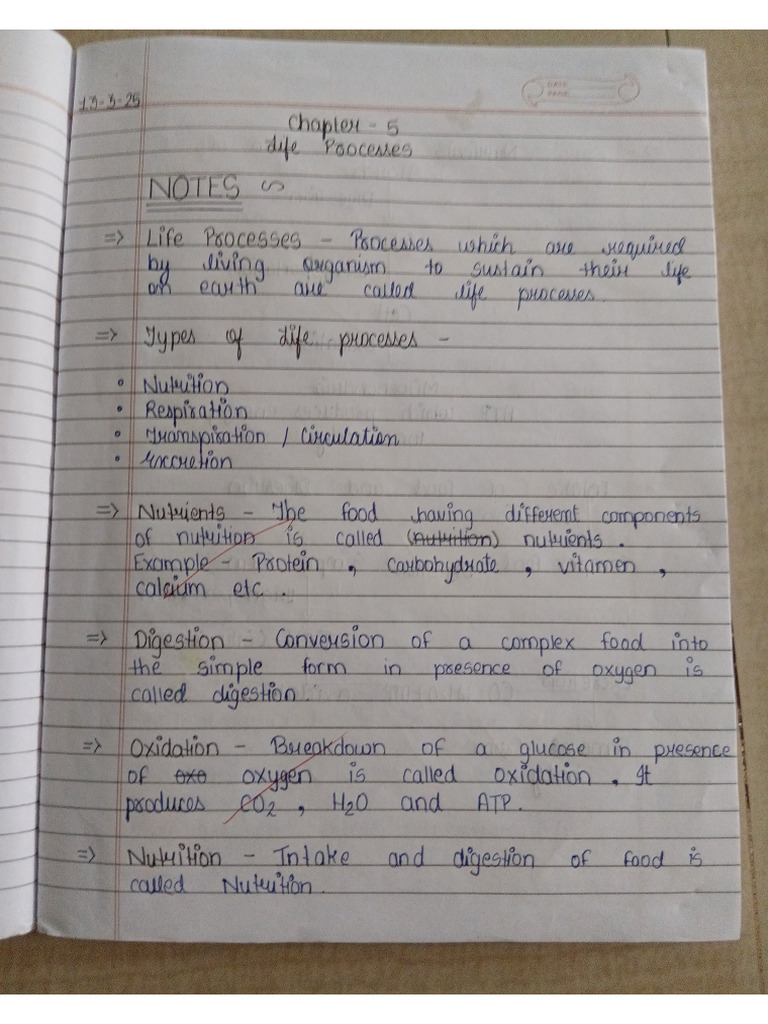 13-3-25
DATE
PAGE
Chapter - 5
Life Processes
NOTES
=> Life Processes - Processes which are required
by living organism to sustain their life
on earth are called life processes.
=> Types of Life processes -
• Nutrition
• Respiration
• Transpiration / Circulation
• Excretion
=> Nutrients - The food having different components
of nutrition is called (nutrition) nutrients.
Example - Protein, carbohydrate, vitamen,
calcium etc.
=> Digestion - Conversion of a complex food into
the simple form in presence of oxygen is
called digestion.
=> Oxidation - Breakdown of a glucose in presence
of oxo oxygen is called oxidation. It
produces CO2, H2O and ATP.
=> Nutrition - Intake and digestion of food is
called Nutrition.